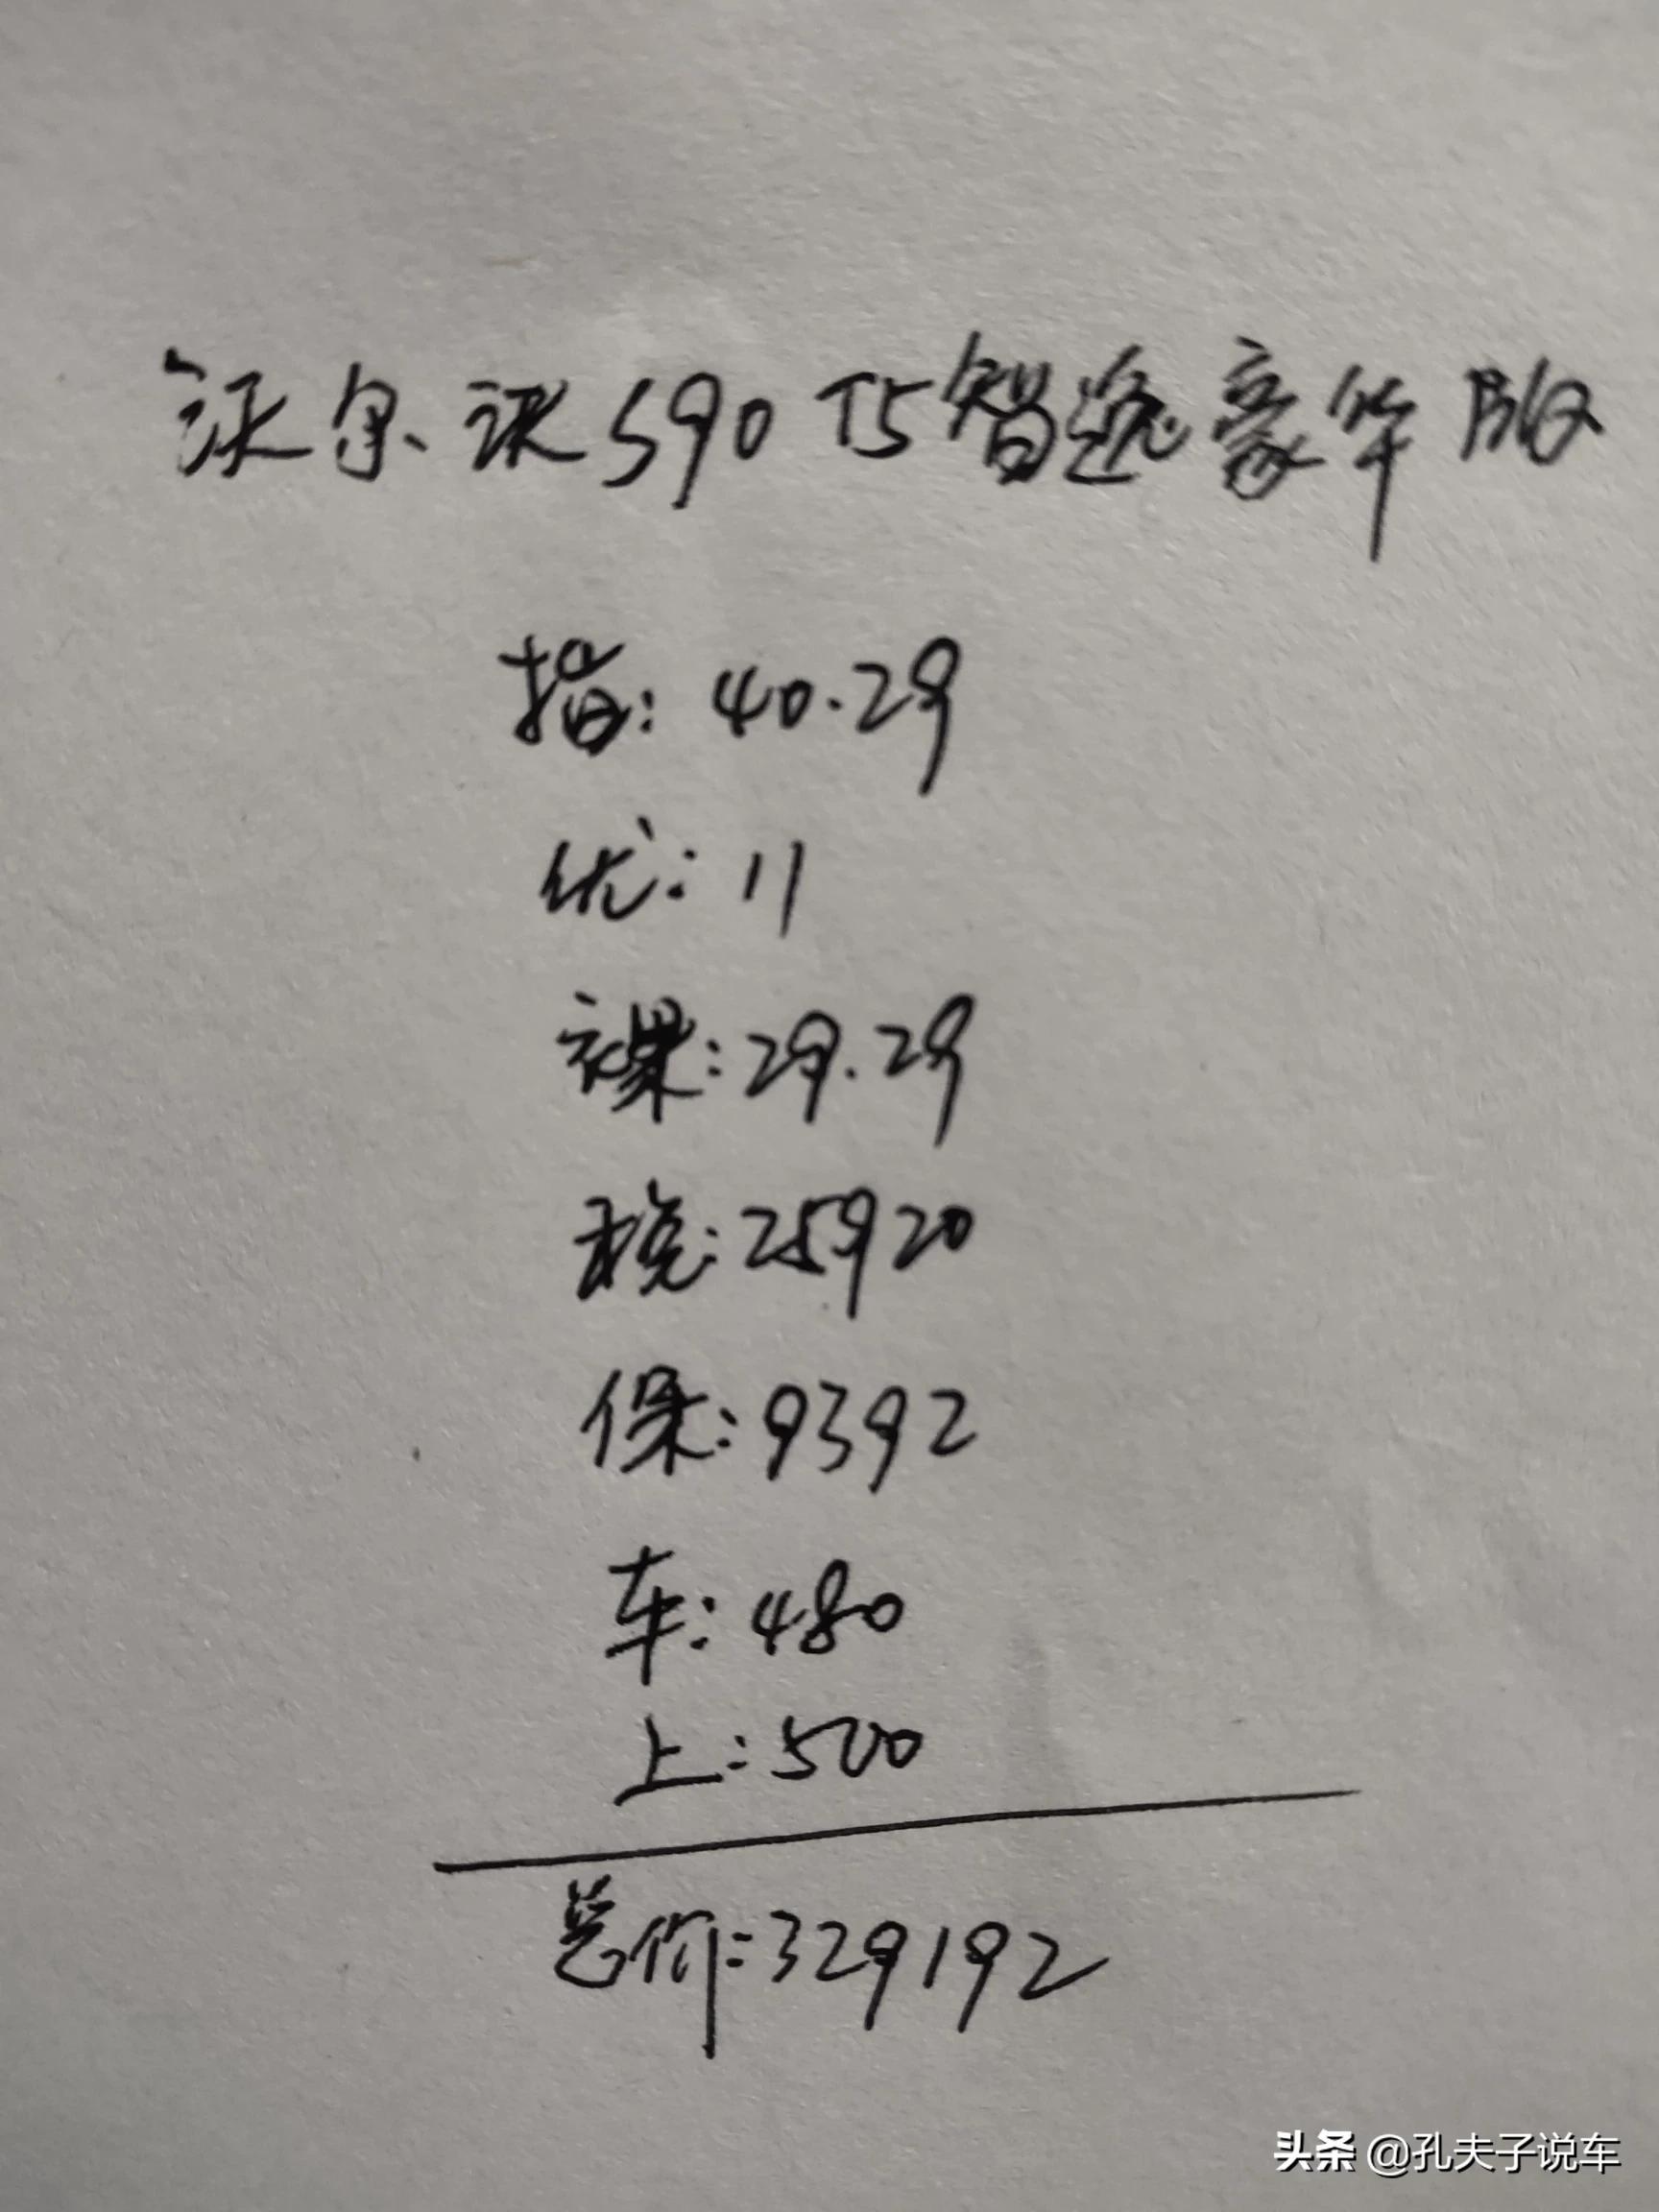 沃尔沃S90 T5智逸豪华版
指：40.29
优：11
裸：29.29
税：25920
保：9392
车：480
上：500
总价：329192
头条 @孔夫子说车